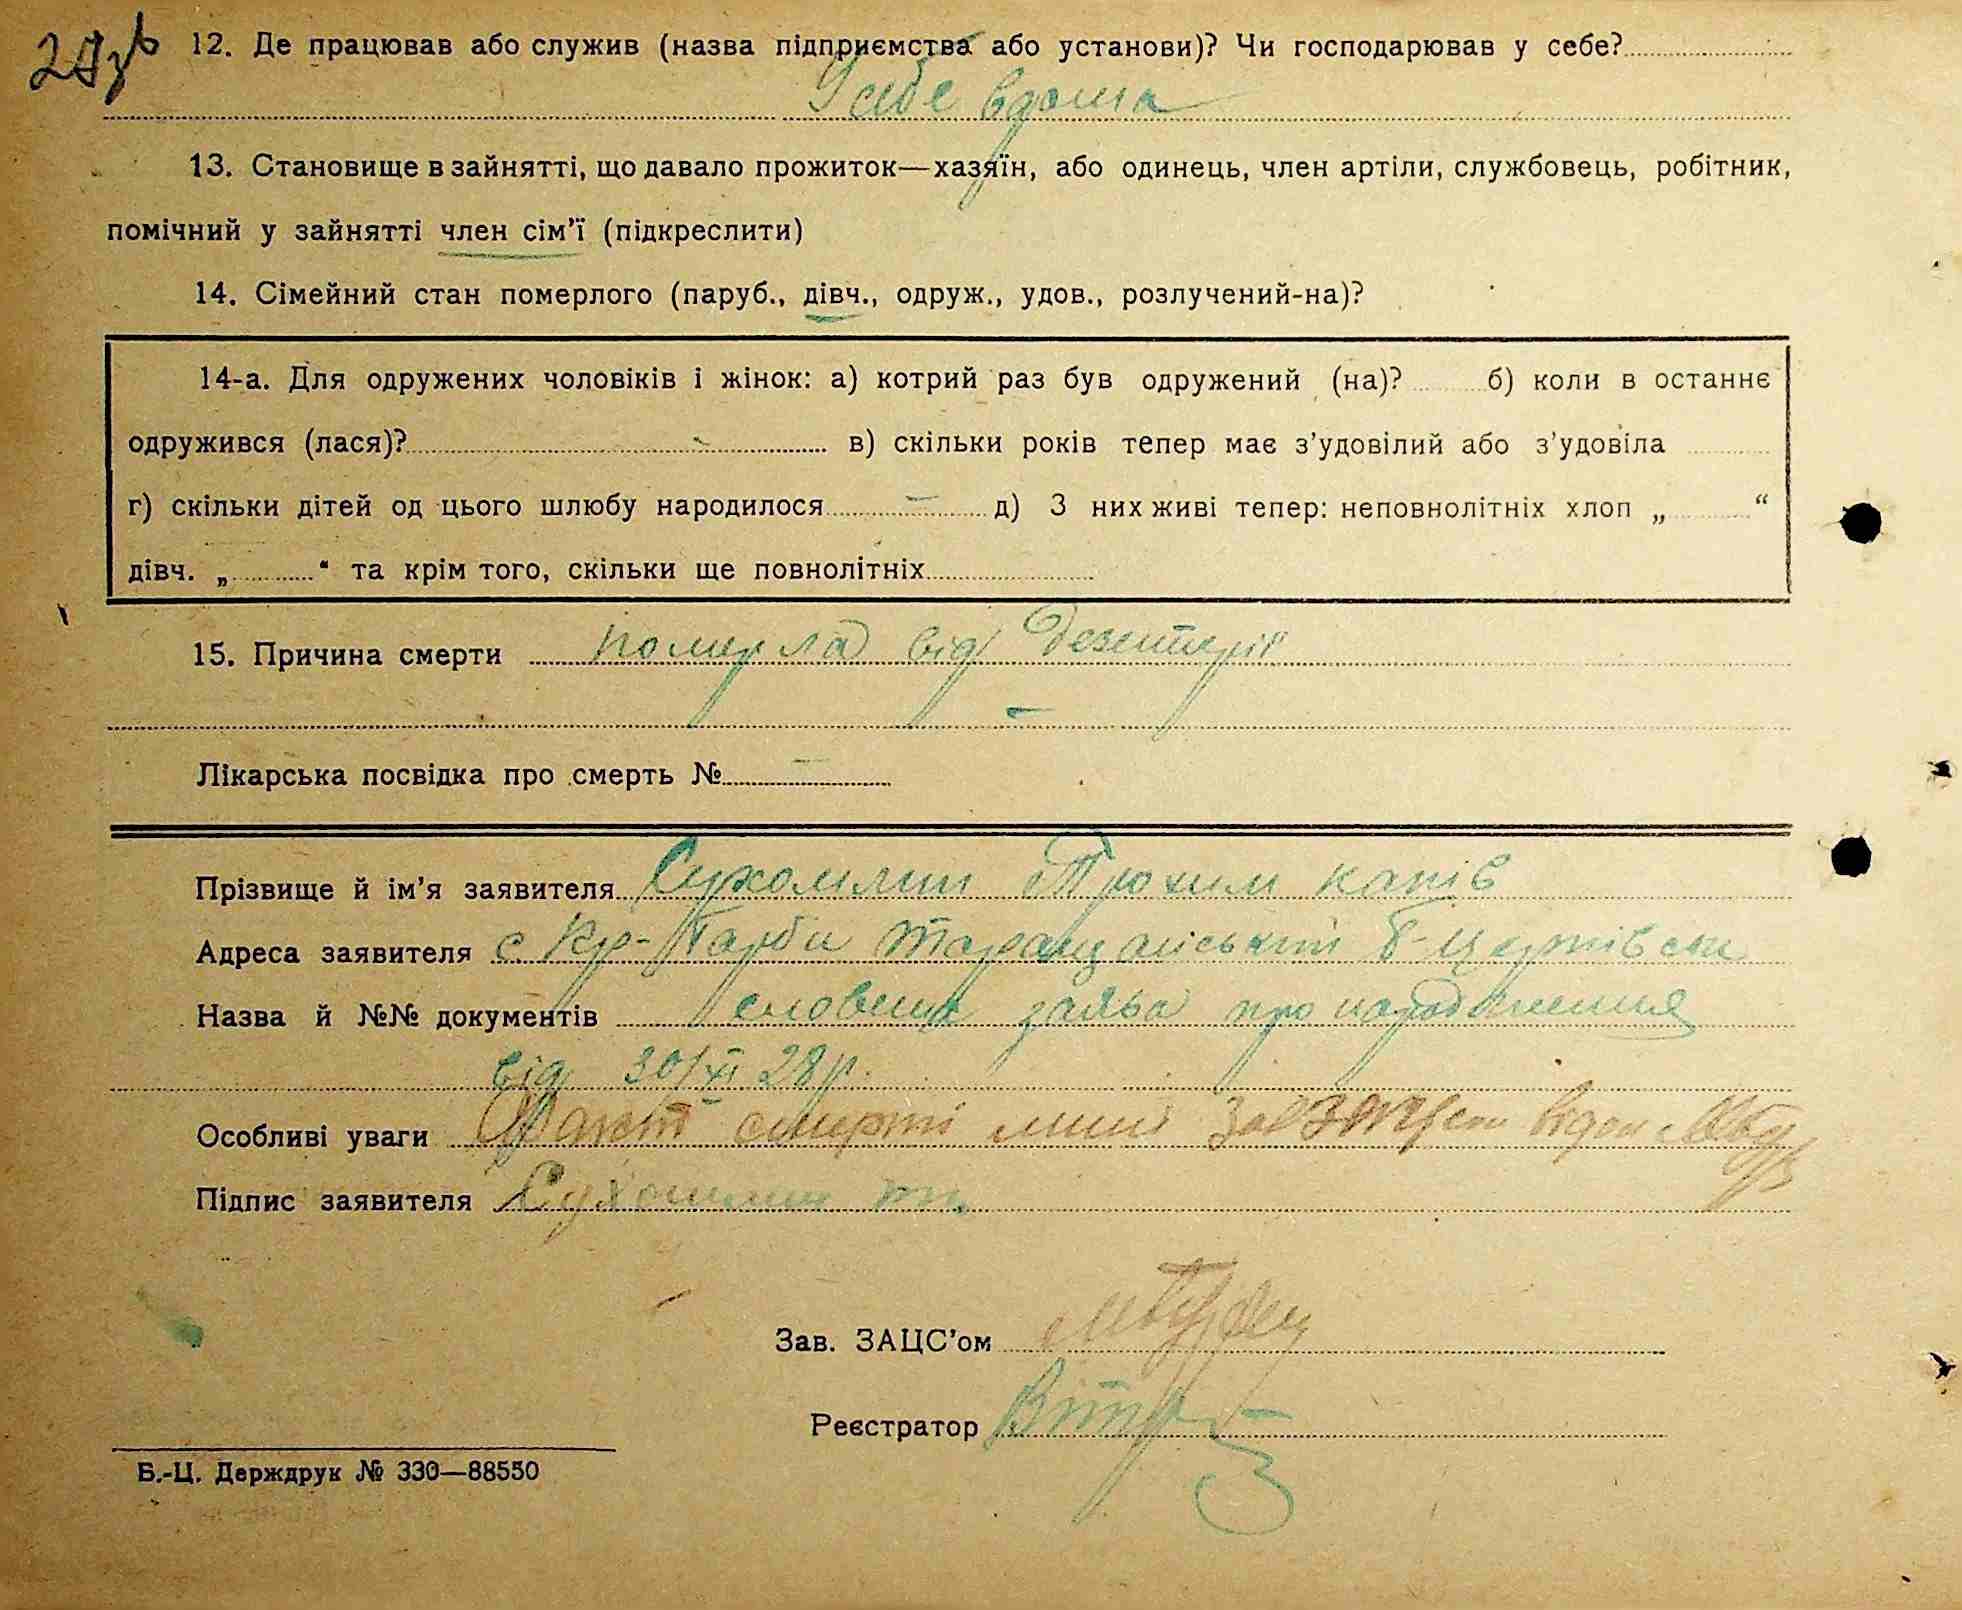 27зв 12. Де працював або служив (назва підприємства або установи)? Чи господарював у себе?
У себе вдома
13. Становище в зайнятті, що давало прожиток—хазяїн, або одинець, член артіли, службовець, робітник,
помічний у зайнятті член сім'ї (підкреслити)
14. Сімейний стан померлого (паруб., дівч., одруж., удов., розлучений-на)?
14-а. Для одружених чоловіків і жінок: а) котрий раз був одружений (на)? б) коли в останнє
одружився (лася)? в) скільки років тепер має з'удовілий або з'удовіла
г) скільки дітей од цього шлюбу народилося – д) З них живі тепер: неповнолітніх хлоп „ “
дівч. „ “ та крім того, скільки ще повнолітніх
15. Причина смерти померла від дезентерії
–
Лікарська посвідка про смерть № –
Прізвище й ім'я заявителя Сухомлин Трохим
Адреса заявителя с Кр- Таращанський Б-Церківськ
Назва й №№ документів словесна заява про народження
від 30/XI 28р.
Особливі уваги Факт смерті мині
Підпис заявителя Сухомлин
Зав. ЗАЦС'ом
Реєстратор
Б.-Ц. Держдрук № 330—88550